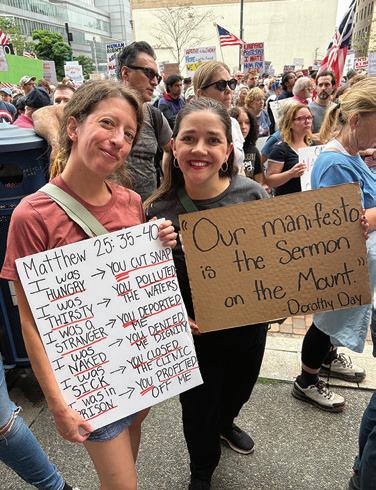 Matthew 25:35-40
I was HUNGRY → YOU CUT SNAP
I was THIRSTY → YOU POLLUTED THE WATERS
I was a STRANGER → YOU DEPORTED ME
I was NAKED → YOU DENIED ME DIGNITY
I was SICK → YOU CLOSED THE CLINIC
I was in PRISON → YOU PROFITED OFF ME
"Our manifesto
is the Sermon
on the Mount."
- Dorothy Day